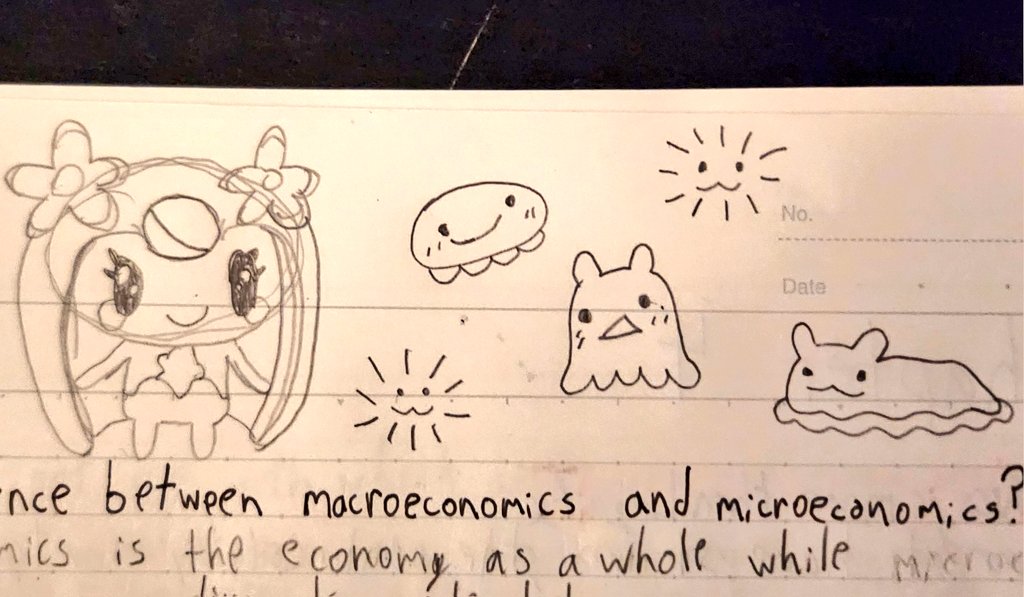 No.
Date
between macroeconomics and microeconomics?
is the economy as a whole while